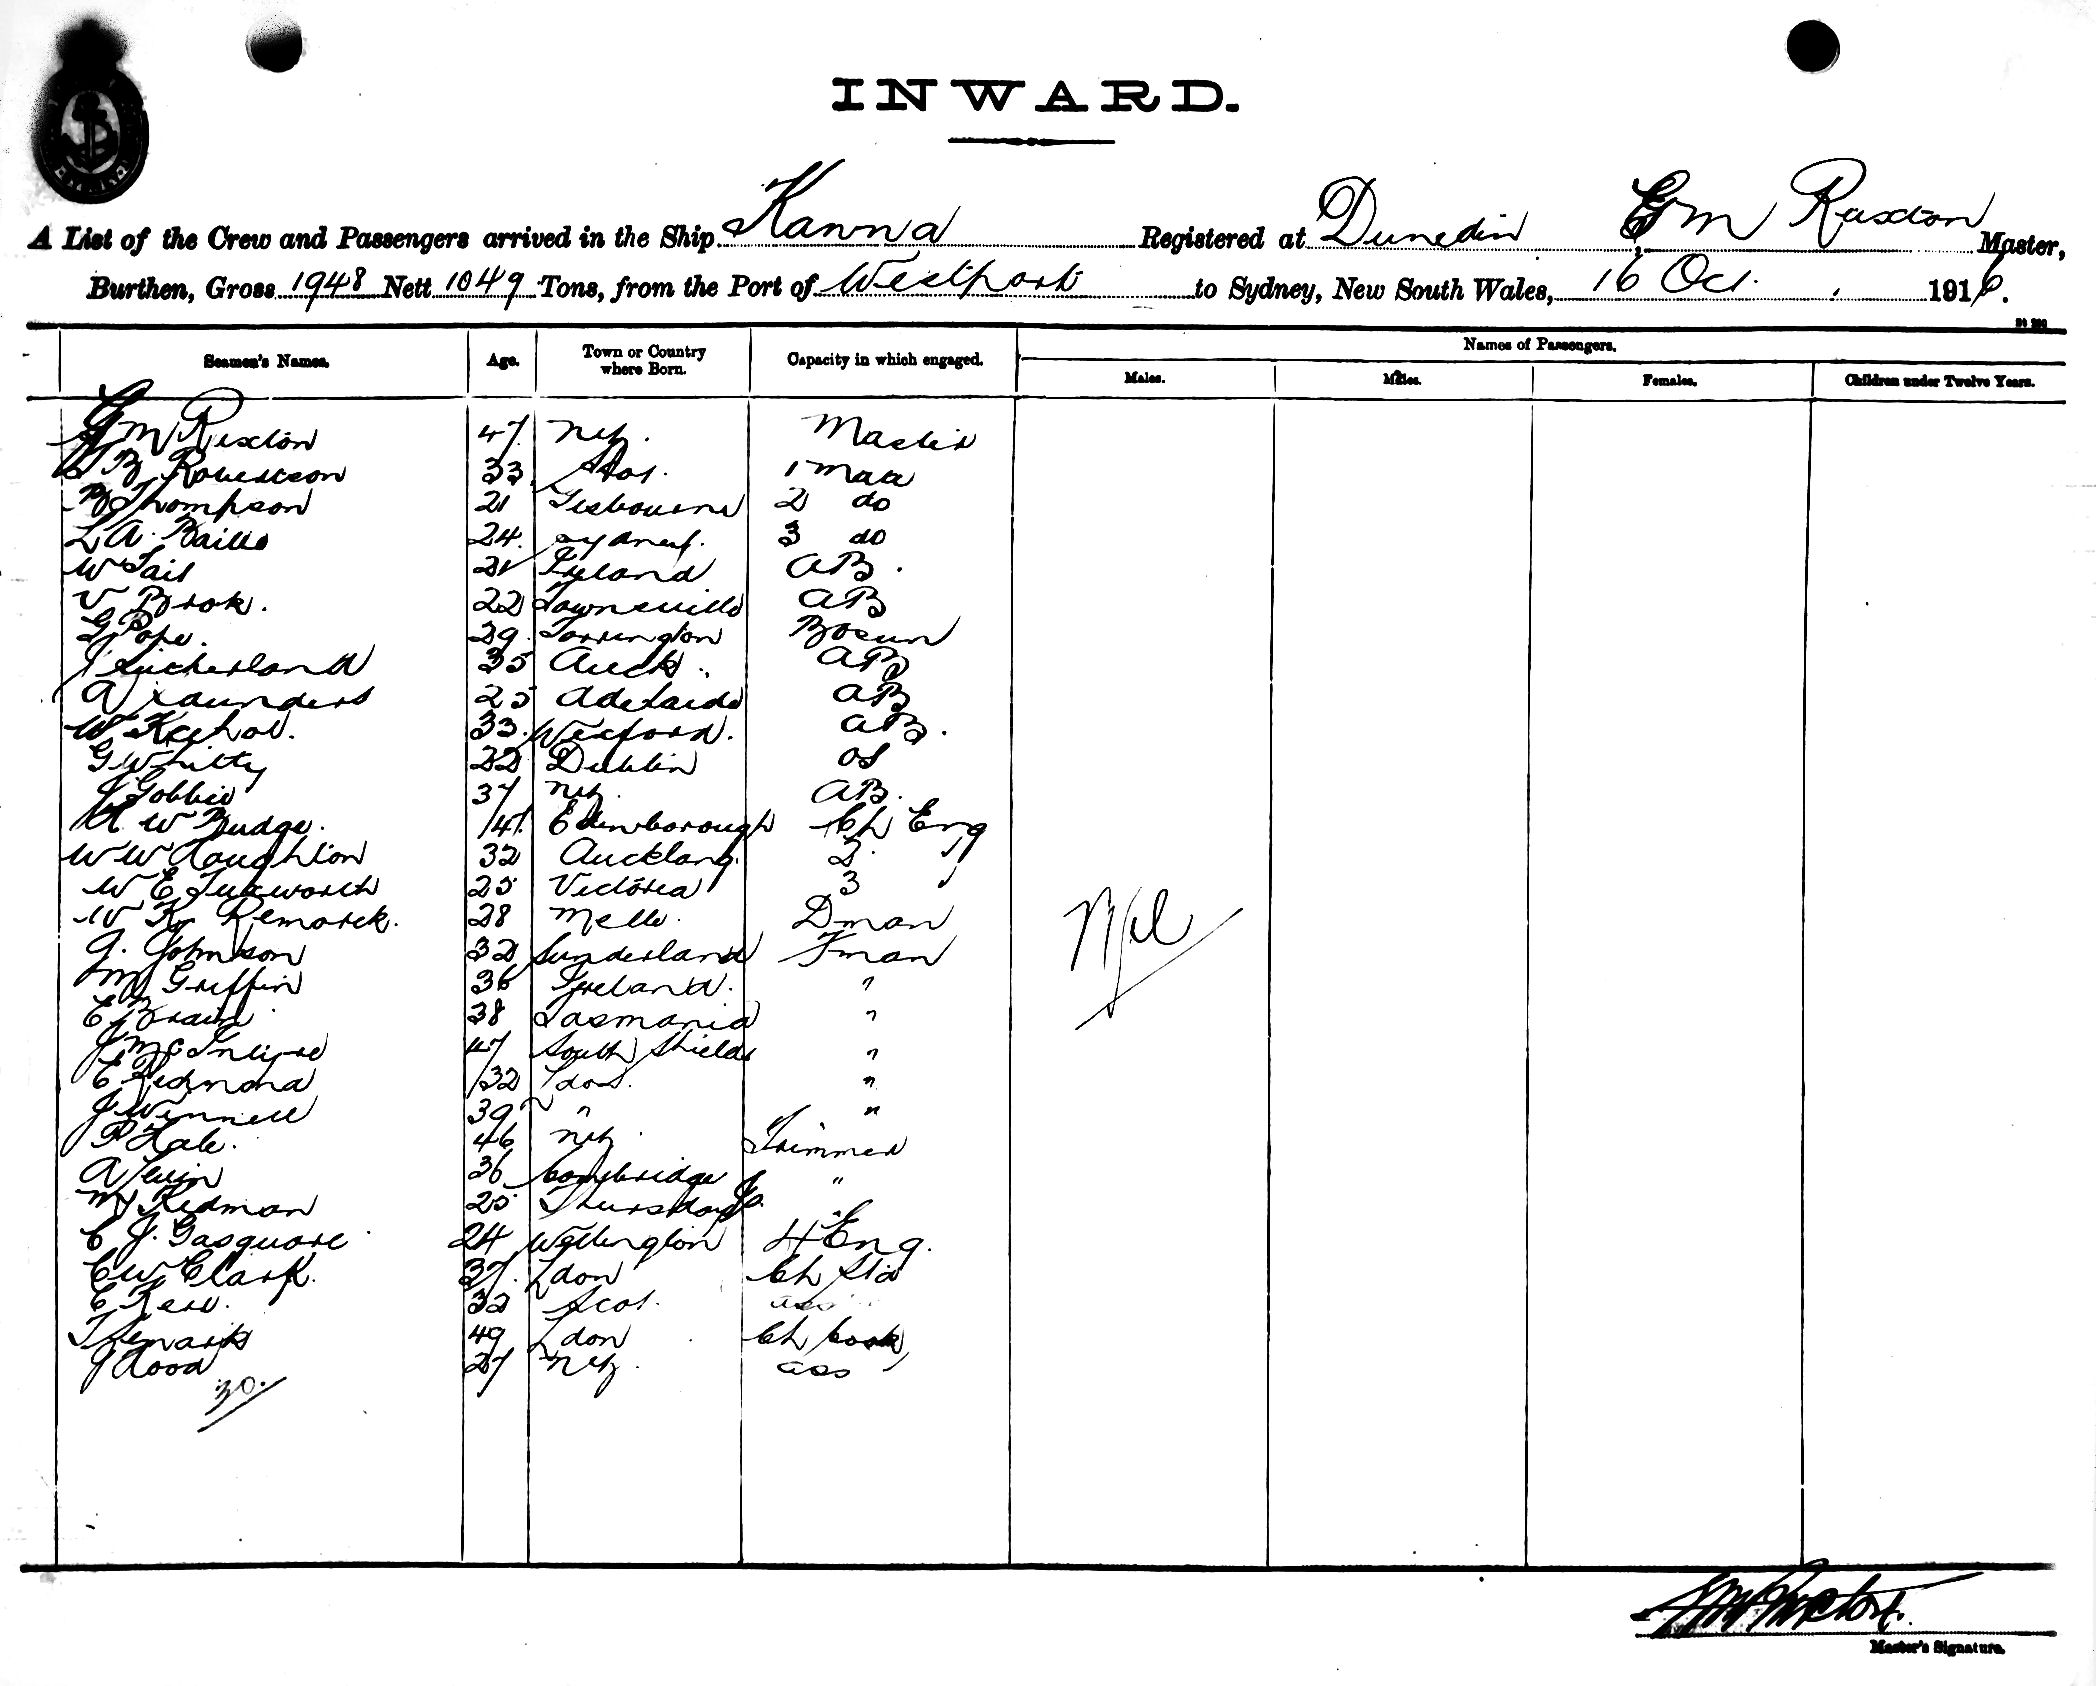 INWARD.
A List of the Crew and Passengers arrived in the Ship Kanna Registered at Dunedin, G M Ruxton Master,
Burthen, Gross 1948 Nett 1049 Tons, from the Port of Westport to Sydney, New South Wales, 16 Oct. 1916.
Seamen's Names. Age. Town or Country where Born. Capacity in which engaged. Names of Passengers.
Males. Males. Females. Children under Twelve Years.
G M Ruxton 47 NZ. Master
B Robertson 33 1 Mate
B Thompson 21 Gisbourne 2 do
L A. Baillie 24. Sydney. 3 do
W Tait 21 Ireland AB.
V Brok. 22 Townsville AB
G Pope. 29. Torrington Bosun
J Sutherland 35 Auck. AB
A Saunders 25 Adelaide AB
W Keehol. 33. Wexford. AB.
G Whitty 22 Dublin OS
J Gobbie 37 NZ. AB.
A W Budge. 41. Edinborough Ch Eng
W W Houghton 32 Auckland. 2. "
W E Tuxworth 25 Victoria 3 "
W K Remarek. 28 Melb. Dman
G. Johnson 32 Sunderland Fman
M Griffin 36 Ireland. "
E Braun 38 Tasmania "
J McIntyre 47 South Shields "
E Redmond 32 Ldon. "
J Winnell 39 " "
P Hale. 46 NZ. Trimmer
A 36 Cambridge "
M Redman 25 Thursday Is.
C J. Gasquare 24 Wellington 4 Eng.
C W Clark. 37. Ldon Ch Std
E Kerr. 32 Scot. ass
49 Ldon Ch Cook
J Hood 27 NZ. ass
30.
Nil
Master's Signature.